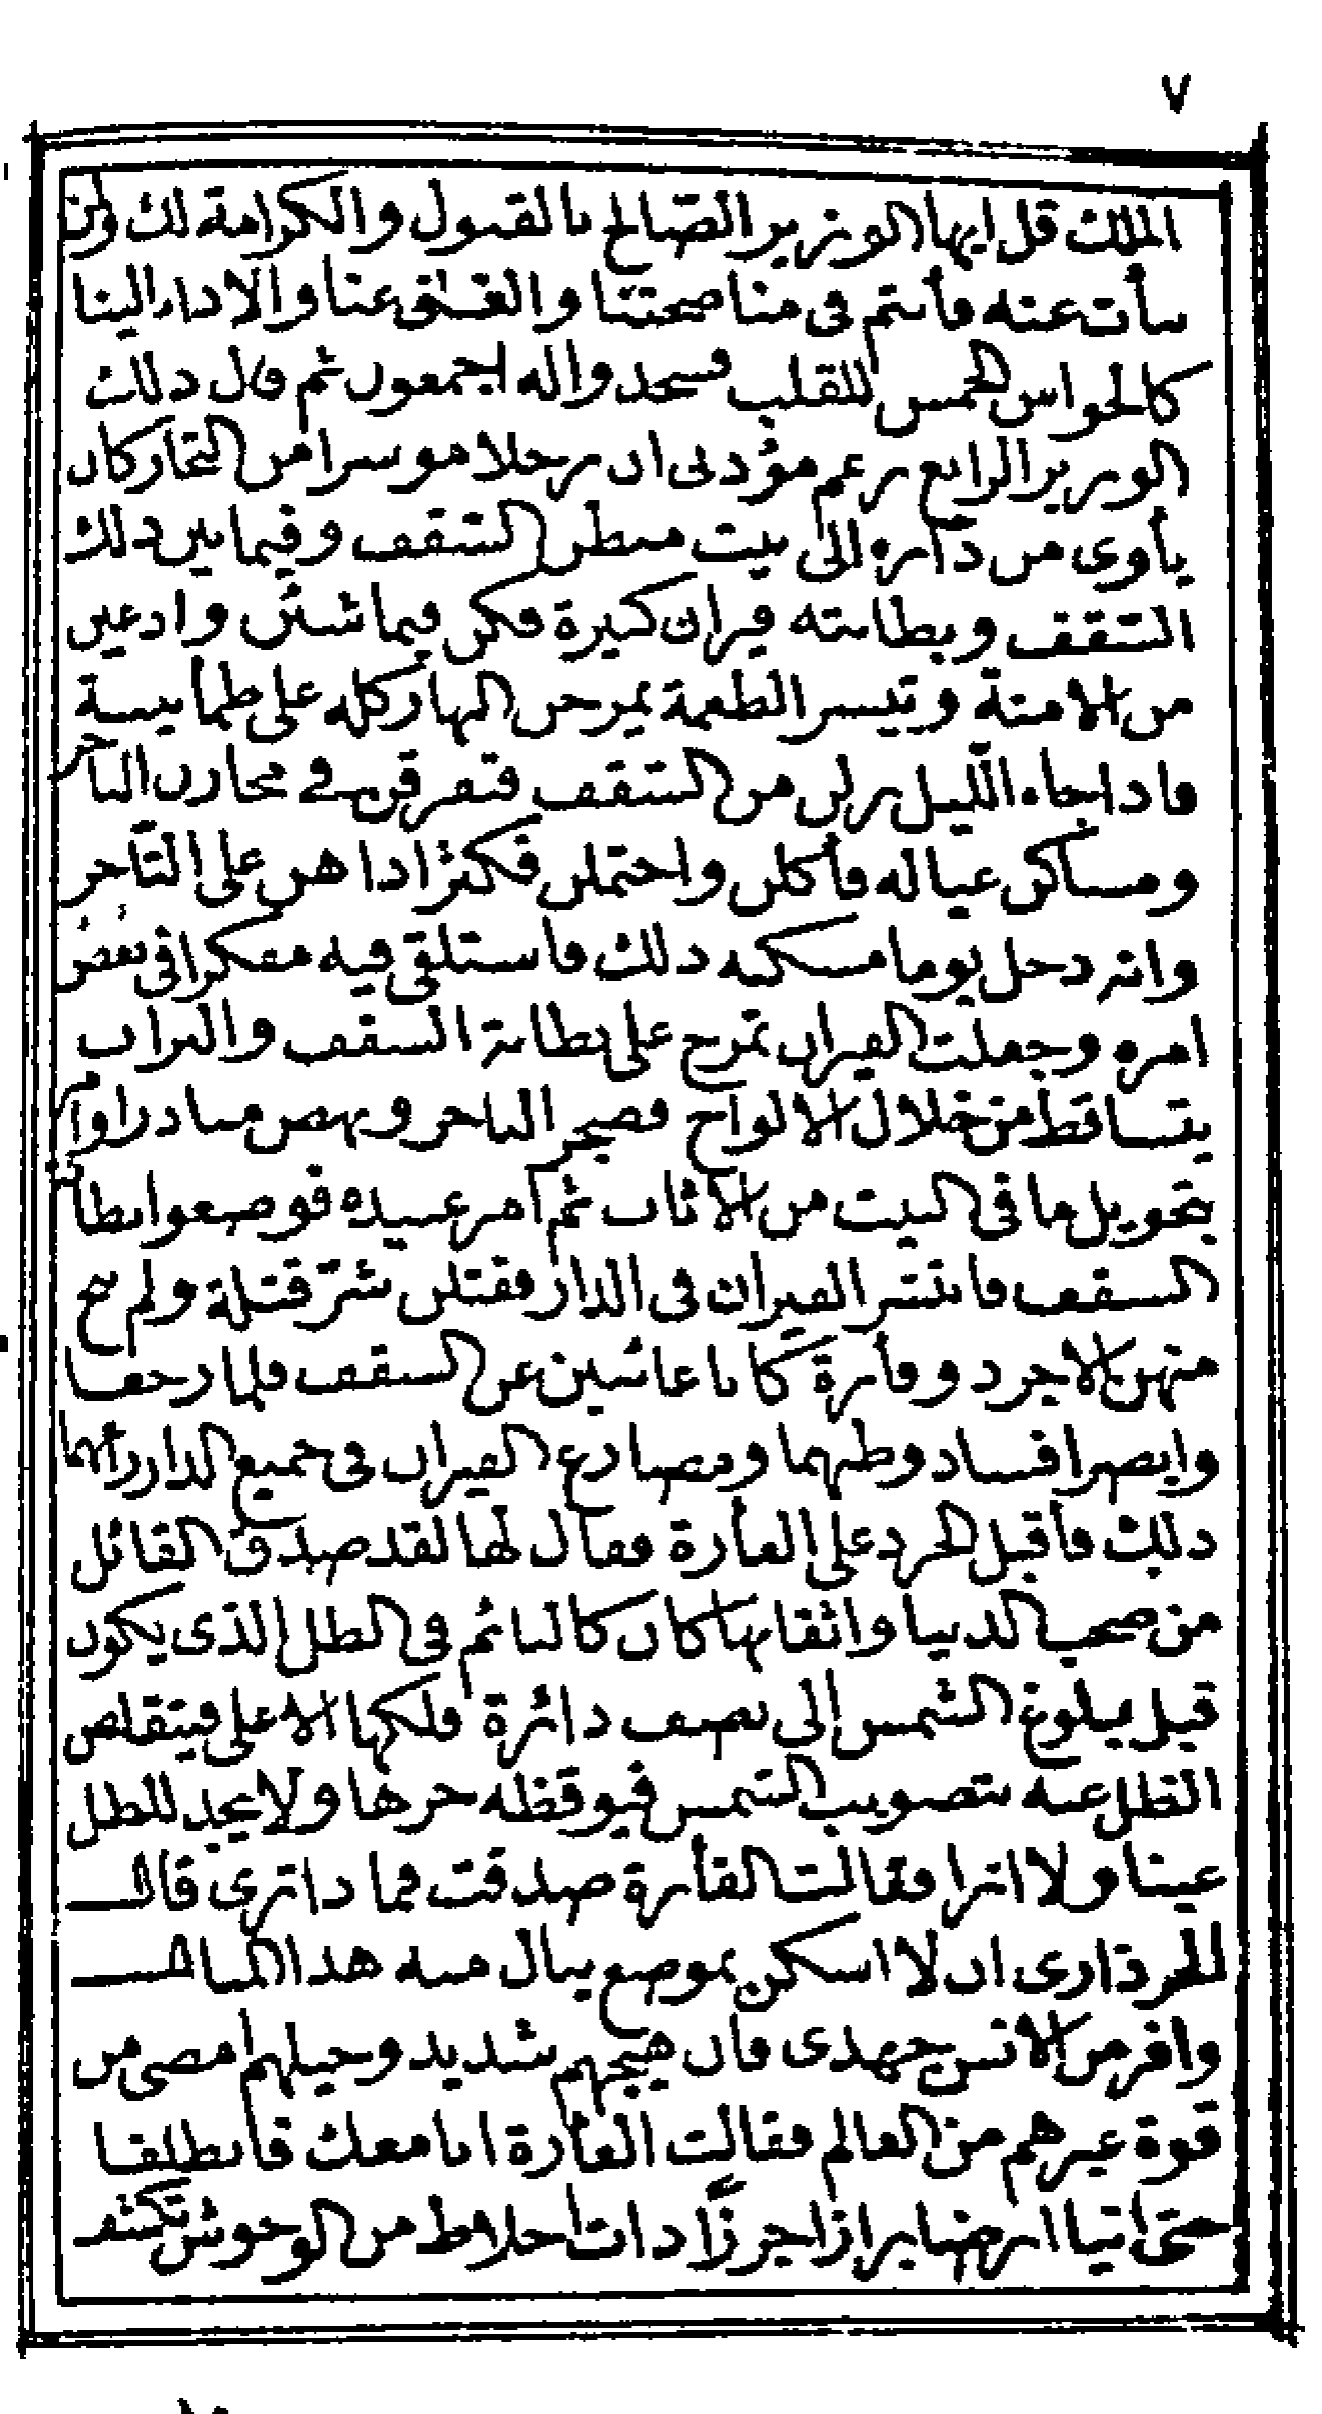 ٧
الملك قل ايها الوزير الصالح بالقبول والكرامة لك ولمن
سأت عنه فأنتم في مناصحتنا والفلق عنا والاداء الينا
كالحواس الخمس للقلب فسجد واله اجمعون ثم قال ذلك
الوزير الرابع زعم مؤدبي ان رجلا موسرا من التجار كان
يأوي من داره الى بيت مبطن السقف وفيما بين ذلك
السقف وبطانته فيران كثيرة فكن فيما شئن وادعين
من الامنة وتيسر الطعمة يمرحن النهار كله على طمأنينة
فاذا جاء الليل نزلن من السقف فتفرقن في مخازن التاجر
ومساكن عياله فأكلن واحتملن فكثر اذا هن على التاجر
وانه دخل يوما مسكنه ذلك فاستلقى فيه مفكرا في بعض
امره وجعلت الفيران تمرح على بطانة السقف والتراب
يتساقط من خلال الالواح فضجر التاجر ونهض مبادرا وامر
بتحويل ما في البيت من الاثاث ثم امر عبيده فوضعوا بطانة
السقف فانتثر الفيران في الدار فقتلن شر قتلة ولم ينج
منهن الا جرذ وفأرة كانا غائبين عن السقف فلما رجعا
وابصرا فساد وطنهما ومصارع الفيران في جميع الدار رأتهما
ذلك فأقبل الجرذ على الفأرة فقال لها لقد صدق القائل
من صحب الدنيا واثقا بها كان كالنائم في الظل الذي يكون
قبل بلوغ الشمس الى نصف دائرة فلكها الاعلى فيتقلص
الظل عنه بتصويب الشمس فيوقظه حرها ولا يجد للظل
عينا ولا اثرا فقالت الفأرة صدقت فما ذا ترى قال
الجرذ ارى ان لا اسكن بموضع ينال منه هذا المنال
وافر من الانس جهدي فان هيجهم شديد وحيلهم امضى من
قوة غيرهم من العالم فقالت الفأرة انا معك فانطلقا
حتى اتيا ارضا برازا جرزا ذات اخلاط من الوحوش تكتنف